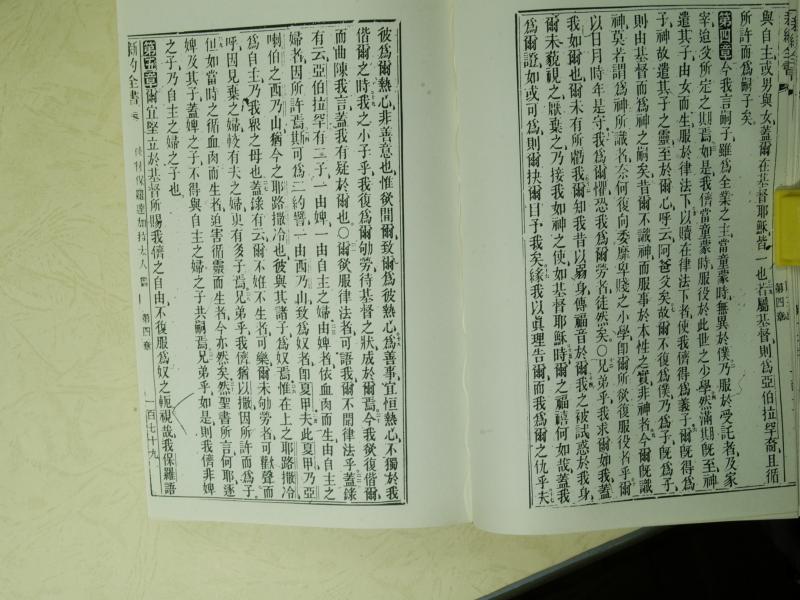 與自主、或男與女、蓋爾在基督耶穌皆一也、若屬基督、則爲亞伯拉罕裔、且循
所許而爲嗣子矣、
第四章 今我言嗣子、雖爲全業之主、當童蒙時、無異於僕、乃服於受託者及家
宰、迨父所定之期焉、如是、我儕當童蒙時、服役於此世之少學、然滿期旣至、神
遣其子、由女而生、服於律法下、以贖在律法下者、使我儕得爲義子、爾旣得爲
子、神故遣其子之靈、至於爾心、呼云、阿爸父矣、故爾不復爲僕、乃爲子、旣爲子、
則由基督而爲神之嗣矣、昔爾不識神、而服事於本性之實非神者、今爾旣識
神、莫若謂爲神所識者、奈何復向委靡卑賤之小學、卽爾所欲復服役者乎、爾
以日月時年是守、我爲爾懼、恐我爲爾勞者徒然矣〇兄弟乎、我求爾如我、蓋
我如爾也、爾未有所虧我、爾知我昔以弱身傳福音於爾、我之被試惑於我身、
爾未藐視之厭棄之、乃接我如神之使、如基督耶穌、時爾之福禧何如哉、蓋我
爲爾證、如或可爲、則爾抉爾目予我矣、緣我以眞理告爾、而我爲爾之仇乎、夫
彼爲爾熱心、非善意也、惟欲間爾、致爾爲彼熱心、爲善事宜恒熱心、不獨於我
偕爾之時、我之小子乎、我復爲爾劬勞、待基督之狀成於爾焉、今我欲復偕爾、
而曲陳我言、蓋我有疑於爾也〇爾欲服律法者、可語我、爾不聞律法乎、蓋錄
有云、亞伯拉罕有二子、一由婢、一由自主之婦、由婢者依血肉而生、由自主之
婦者、因所許焉、其可爲二約譬、一由西乃山致爲奴者、卽夏甲、夫此夏甲乃亞
喇伯之西乃山、猶今之耶路撒冷也、彼與其諸子爲奴焉、惟在上之耶路撒冷
爲自主、乃我衆之母也、蓋錄有云、爾不姙不生者、可樂、爾未劬勞者、可歡聲而
呼、因見棄之婦、較有夫之婦、更有多子焉、兄弟乎、我儕猶以撒、因所許而爲子、
但如當時之循血肉而生者、迫害循靈而生者、今亦然矣、然聖書所言何耶、逐
婢及其子、蓋婢之子不得與自主之婦之子共嗣焉、兄弟乎、如是、則我儕非婢
之子、乃自主之婦之子也、
第五章 爾宜堅立於基督所賜我儕之自由、不復服爲奴之軛、視哉、我保羅語
新約全書 使徒保羅達加拉太人書 第四章 一百七十九